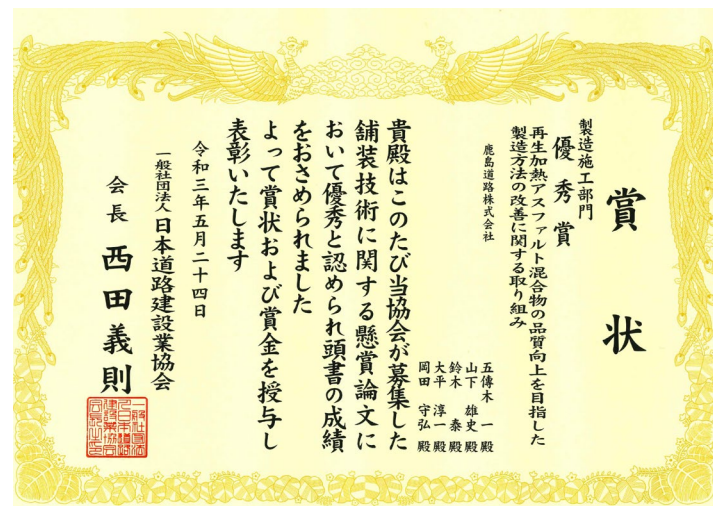 賞状
製造施工部門
優秀賞
再生加熱アスファルト混合物の品質向上を目指した
製造方法の改善に関する取り組み
鹿島道路株式会社
五傳木 一 殿
山下 雄史 殿
鈴木 泰 殿
大平 淳一 殿
岡田 守弘 殿
貴殿はこのたび当協会が募集した
舗装技術に関する懸賞論文に
おいて優秀と認められ頭書の成績
をおさめられました
よって賞状および賞金を授与し
表彰いたします
令和三年五月二十四日
一般社団法人日本道路建設業協会
会長 西田義則
一般社団法
人日本道路
建設業協会
会長之印